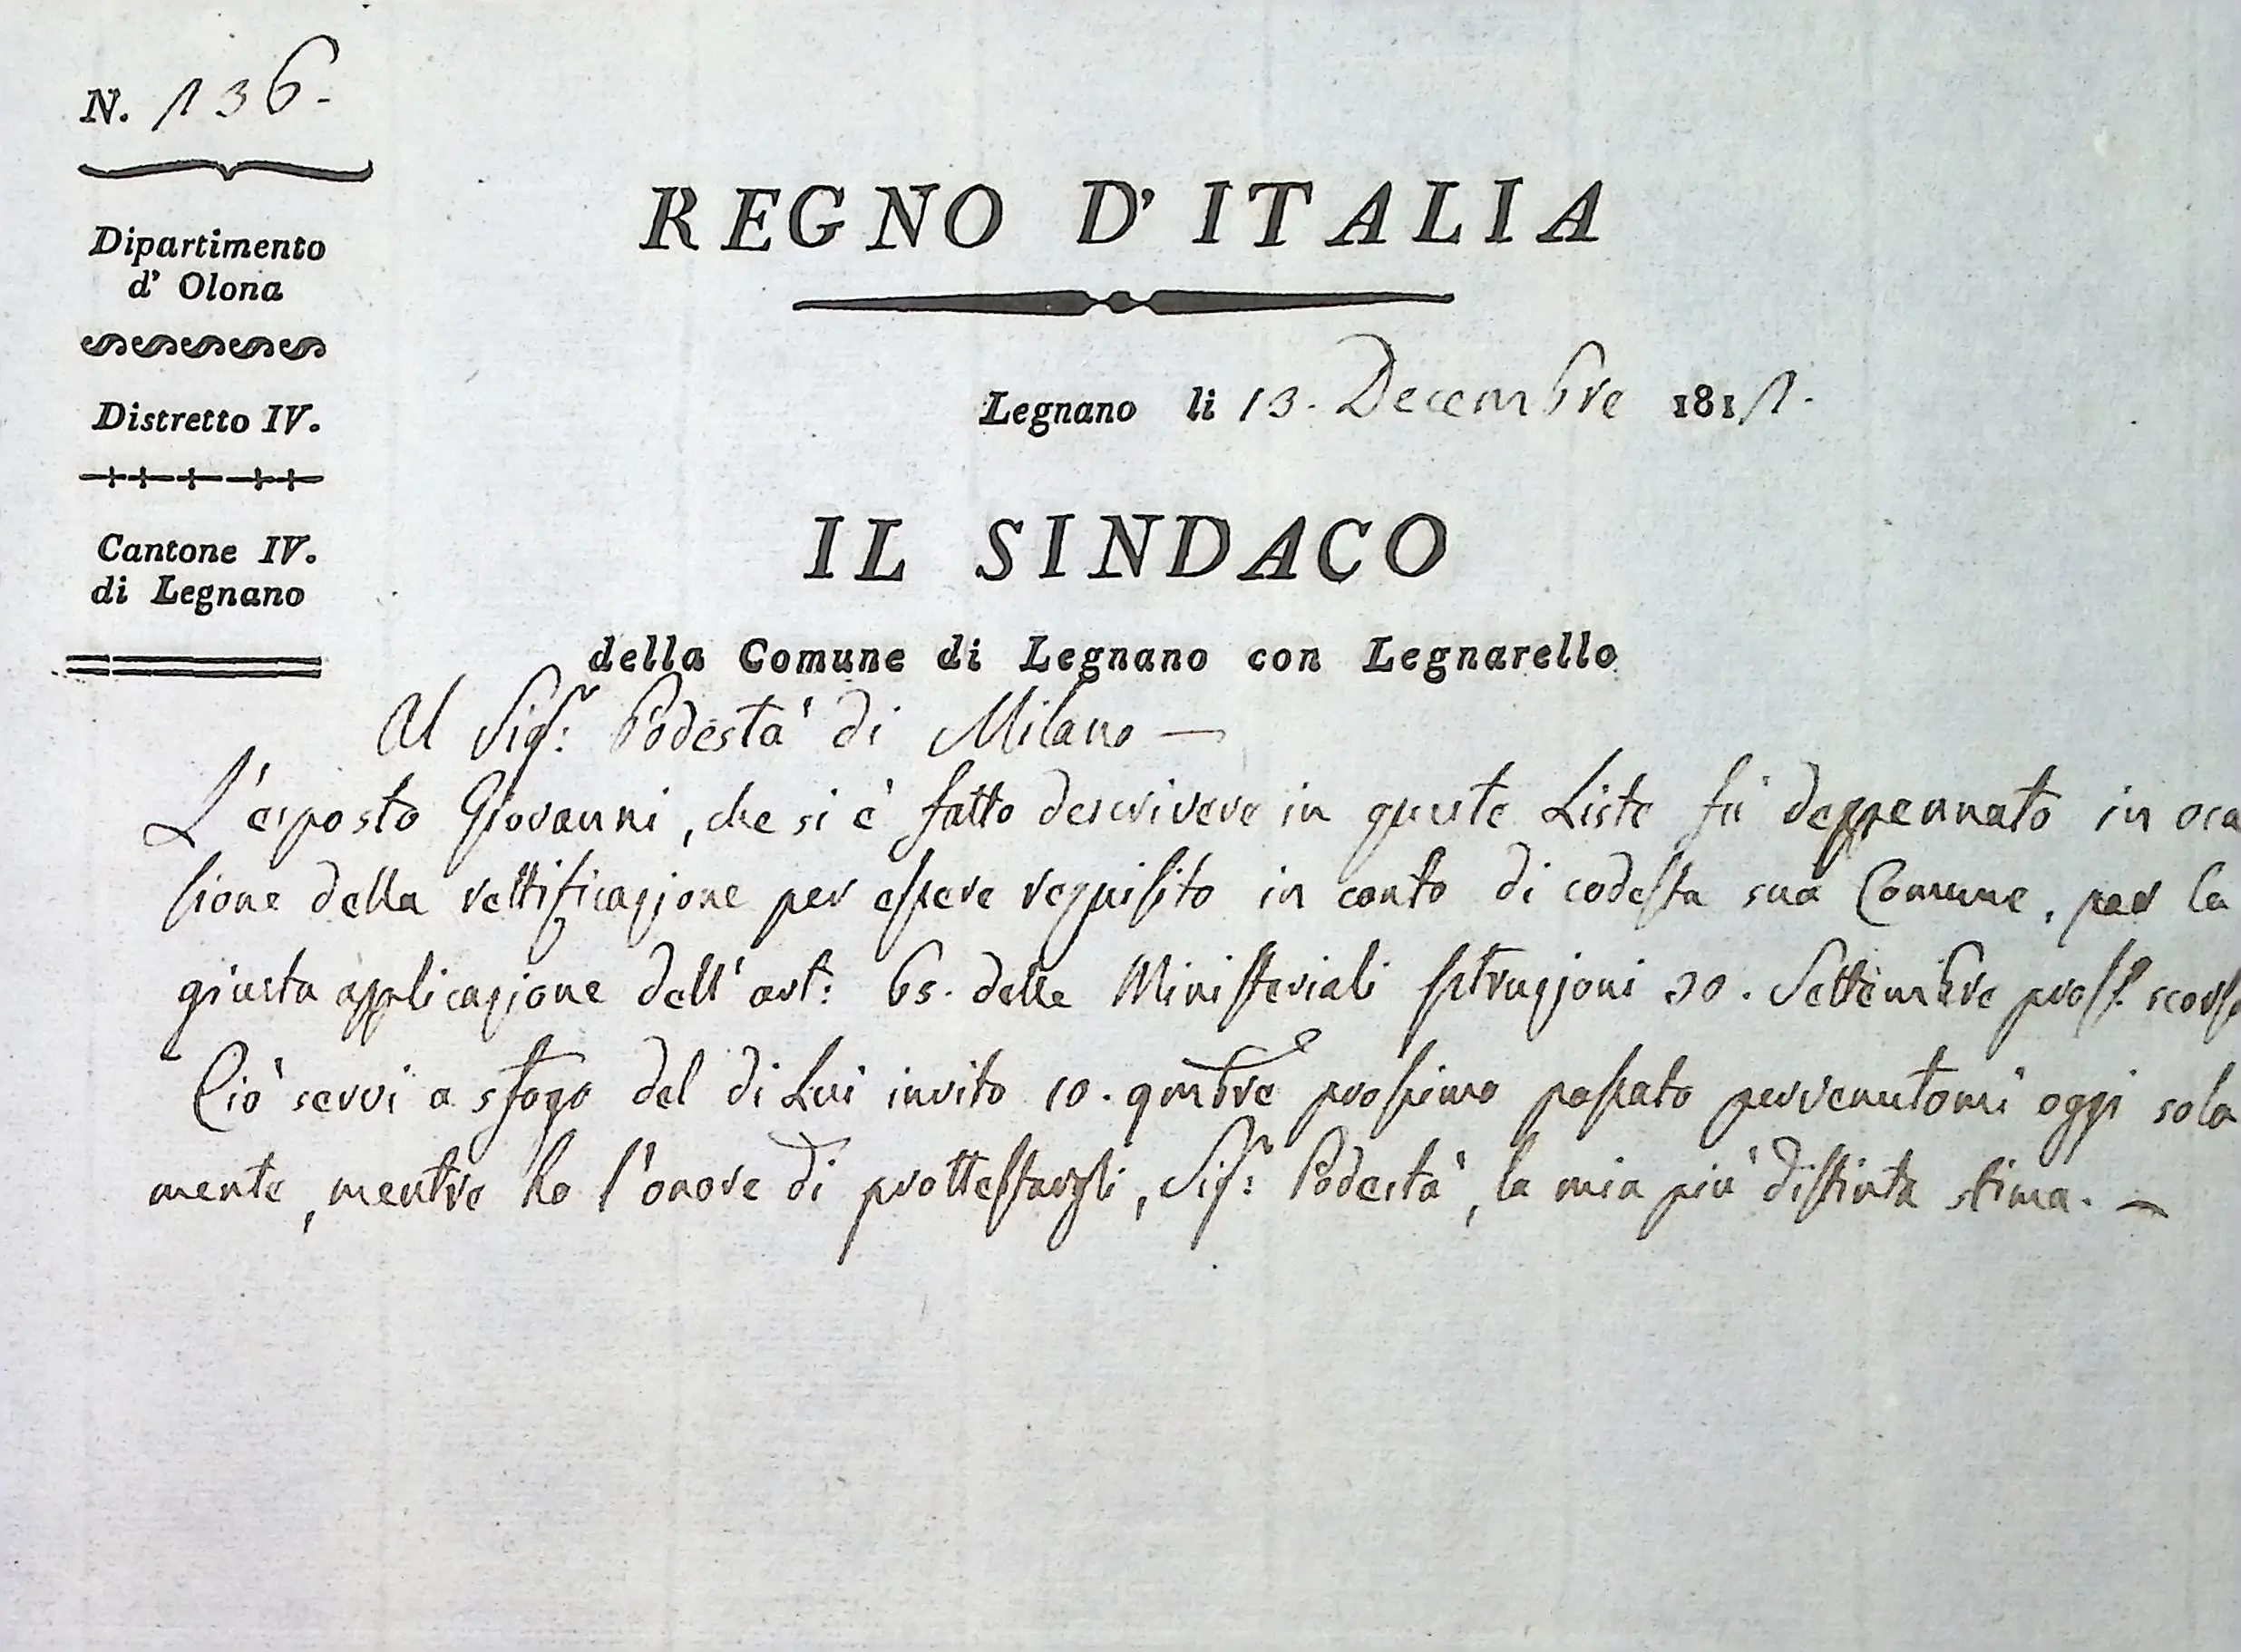 N. 136.
Dipartimento
d' Olona
Distretto IV.
Cantone IV.
di Legnano
REGNO D' ITALIA
Legnano li 13. Decembre 1811.
IL SINDACO
della Comune di Legnano con Legnarello
Al Sigr: Podestà di Milano —
L'esposto Giovanni, che si è fatto descrivere in queste Liste fu deppennato in oca
sione della rettificazione per essere requisito in conto di codesta sua Comune, per la
giusta applicazione dell' art: 65. delle Ministeriali Istruzioni 30. Settembre pross.o scorso
Ciò servi a sfogo del di Lui invito 10. 9mbre prossimo passato pervenutomi oggi sola
mente, mentre ho l'onore di prottestargli, Sigr: Podestà, la mia più distinta stima. —